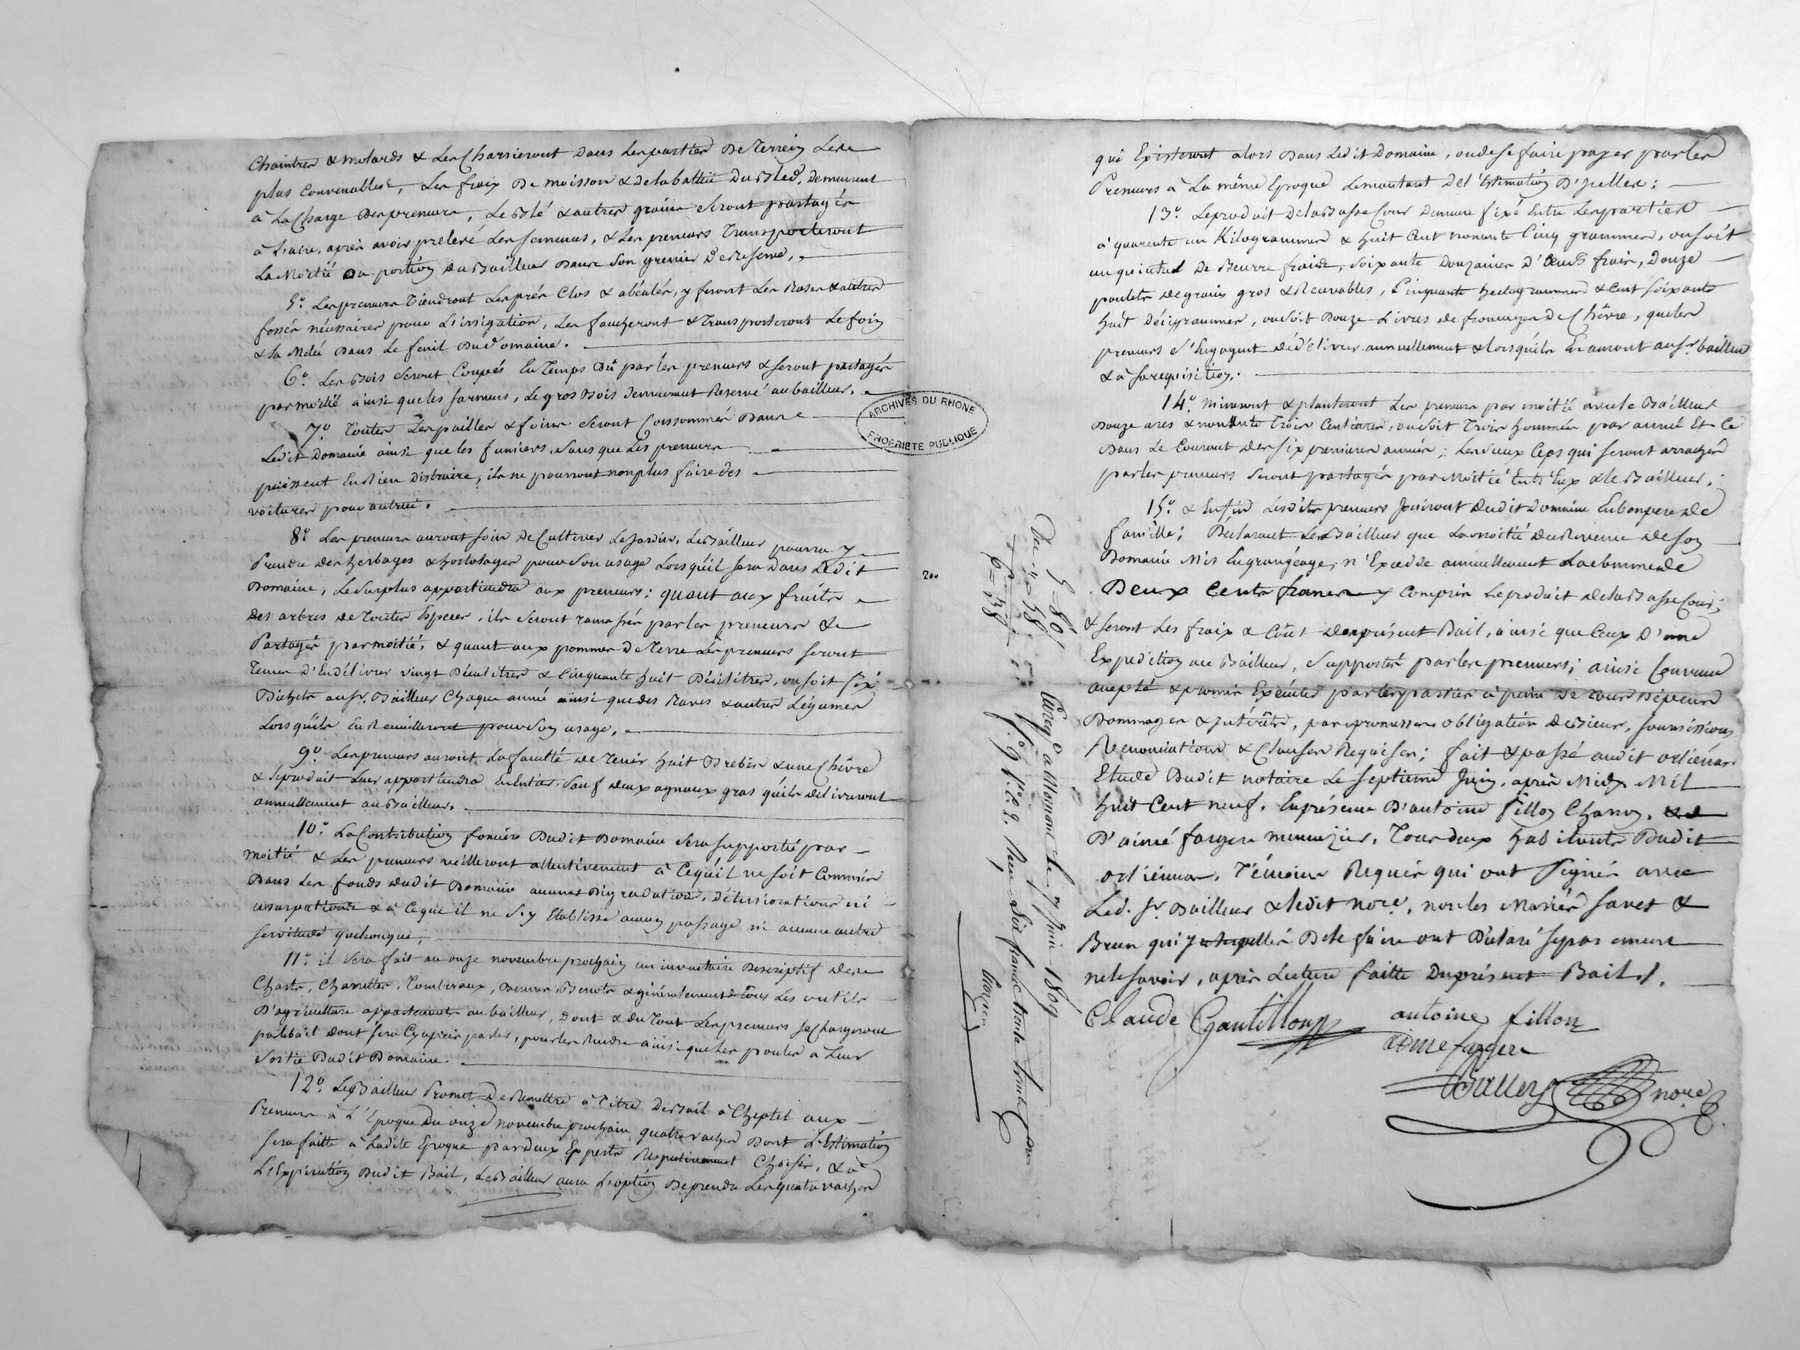 Chaintres & molards & les Charrieront dans les parties de Terrein les
plus convenables, les fraix de moisson & de la battue du Bled, demeurant
à la Charge des preneurs, le Blé & autres grains seront partagés
à l'aire, après avoir prelevé les semences, & les preneurs Transporteront
la Moitié ou portion du Bailleur dans son grenier de reserve.
5.º Les preneurs Tiendront les prés Clos & y feront les Rases & autres
fossés nécessaires pour l'irrigation, les faucheront & Transporteront le foin
& la dans le fenil du Domaine.
6.º Les Bois seront Coupés en Temps Dû par les preneurs & seront partagés
par moitié ainsi que les sarmens, le gros Bois demeurant Reservé au bailleur.
7.º Toutes les pailles & foins seront Consommés dans
Ledit Domaine ainsi que les fumiers, sans que les preneurs
puissent en Rien Distraire, ils ne pourront non plus faire des
voitures pour autrui.
8.º Les preneurs auront soin de Cultiver le Jardin, le Bailleur pourra y
Prendre des herbages & hortolages pour son usage lorsqu'il sera dans Ledit
Domaine, le surplus appartiendra aux preneurs; quant aux fruits
des arbres de Toutes Especes, ils seront ramassés par les preneurs &
Partagés par moitié, & quant aux pommes de Terre les preneurs seront
Tenus d'En délivrer vingt Décalitres & Cinquante huit Décilitres, ou soit six
Bichets au sr. Bailleur Chaque année ainsi que des Raves & autres Légumes
Lorsqu'ils en Recueilleront pour son usage.
9.º Les preneurs auront la faculté de Tenir huit Brebis & une Chêvre
& le produit leur appartiendra en Entier, sauf deux agneaux gras qu'ils délivreront
annuellement au Bailleur.
10.º La Contribution fonciere Dudit Domaine sera supportée par
moitié & les preneurs veilleront attentivement à Ce qu'il ne soit Commis
Dans les fonds dudit Domaine aucunes Dégradations, détériorations ni
usurpations & à Ce qu'il ne s'y Etablisse aucun passage ni aucune autre
servitude quelconque.
11.º il sera fait au onze novembre prochain un inventaire Descriptif des
Chars, Charrettes, Tombereaux, Bennes, Bennots & généralement de tous Les outils
D'agriculture appartenant au bailleur, dont & du Tout les preneurs se chargeront
par bail dont sera Cy après parlé, pour les Rendre ainsi que les poules à leur
Sortie Dudit Domaine.
12.º Le Bailleur Promet de Remettre à Titre de Bail à Cheptel aux
Preneurs à l'Epoque du onze novembre prochain quatre vaches Dont l'Estimation
sera faitte à Ladite Epoque par deux Experts Respectivement Choisis, & à
l'Expiration Dudit Bail, le Bailleur aura l'option de prendre les quatre vaches
ARCHIVES DU RHONE
PROPRIETE PUBLIQUE
200
Du 7 Juin 1809
qui Existeront alors dans Ledit Domaine, ou de se faire payer par les
Preneurs à la même Epoque le montant de l'Estimation D'icelles;
13.º Le produit de la Basse Cour demeure fixé Entre les parties
à quarente un Kilogrammes & huit Cent nonante Cinq grammes, ou soit
un quintal de Beurre fraix, soixante Douzaines d'œufs frais, Douze
poulets de grain gros & Recevables, Cinquante hectogrammes & Cent soixante
huit décigrammes, ou soit Douze Livres de fromages de Chêvre, que les
preneurs s'Engagent de délivrer annuellement & lorsqu'ils En auront au sr. bailleur
& à sa requisition.
14.º mineront & planteront les preneurs par moitié avec le Bailleur
Douze ares & nonante Trois Centiares, ou soit Trois hommées par année Et Ce
Dans le Courant des six premieres années; Les vieux Ceps qui seront arrachés
par les preneurs seront partagés par Moitié Entr'Eux & le Bailleur;
15.º & Enfin lesdits preneurs Jouiront dudit Domaine En bon pere de
famille; Déclarant Le Bailleur que la moitié du Revenu de son
Domaine Mis En grangéage, n'Excede annuellement la somme de
Deux Cents francs y Compris le produit de la Basse Cour;
& seront Les fraix & Coût du présent Bail, ainsi que Ceux D'une
Expedition au Bailleur, supportés par les preneurs; ainsi Convenu
accepté & promis Exécuter par les parties à peine De Tous Dépens
Dommages & intérêts, par promesses obligation de Biens, soumissions
Renonciations & Clauses Requises; fait & passé audit orliénas
Etude Dudit notaire Le septieme Juin après Midy Mil
huit Cent neuf. En présence D'antoine fillon Charron, &
D'aimé fargere menuizier, Tous deux habitants Dudit
orliénas, Témoins Requis qui ont signé avec
Led. Sr. Bailleur & ledit nore, non les Mariés favet &
Brun qui interpellés De le faire ont Déclaré séparément
ne le savoir, après Lecture faitte du présent Bail.
Claude Gantillon
antoine fillon
aime fargere
nore